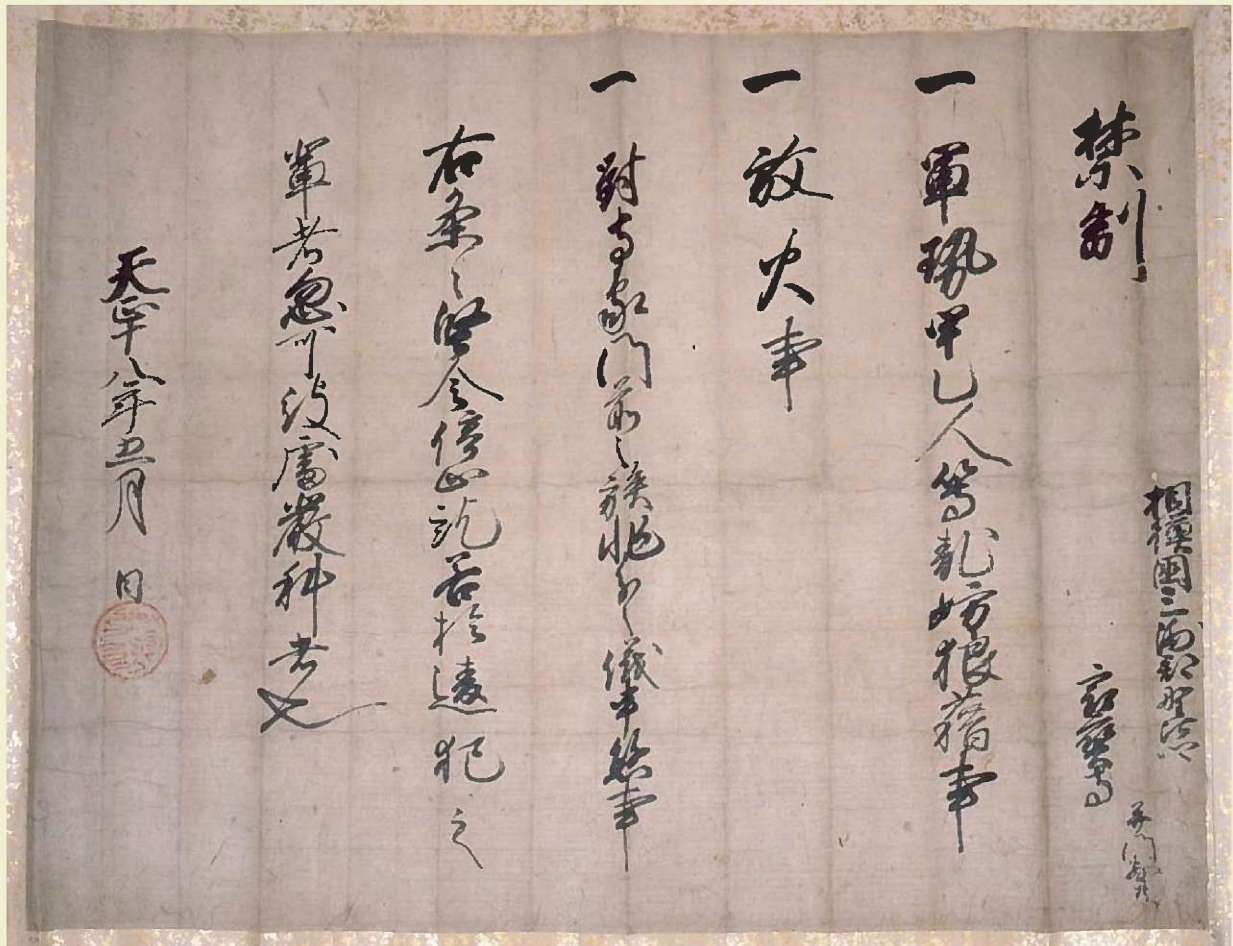 禁制
相模国三浦郡野比
寺
一 軍勢甲乙人等乱妨狼藉事
一 放火事
一 対寺家門前之族非分之儀申懸事
右条々堅令停止訖若於違犯之
輩者忽可被処厳科者也
天正十八年五月 日